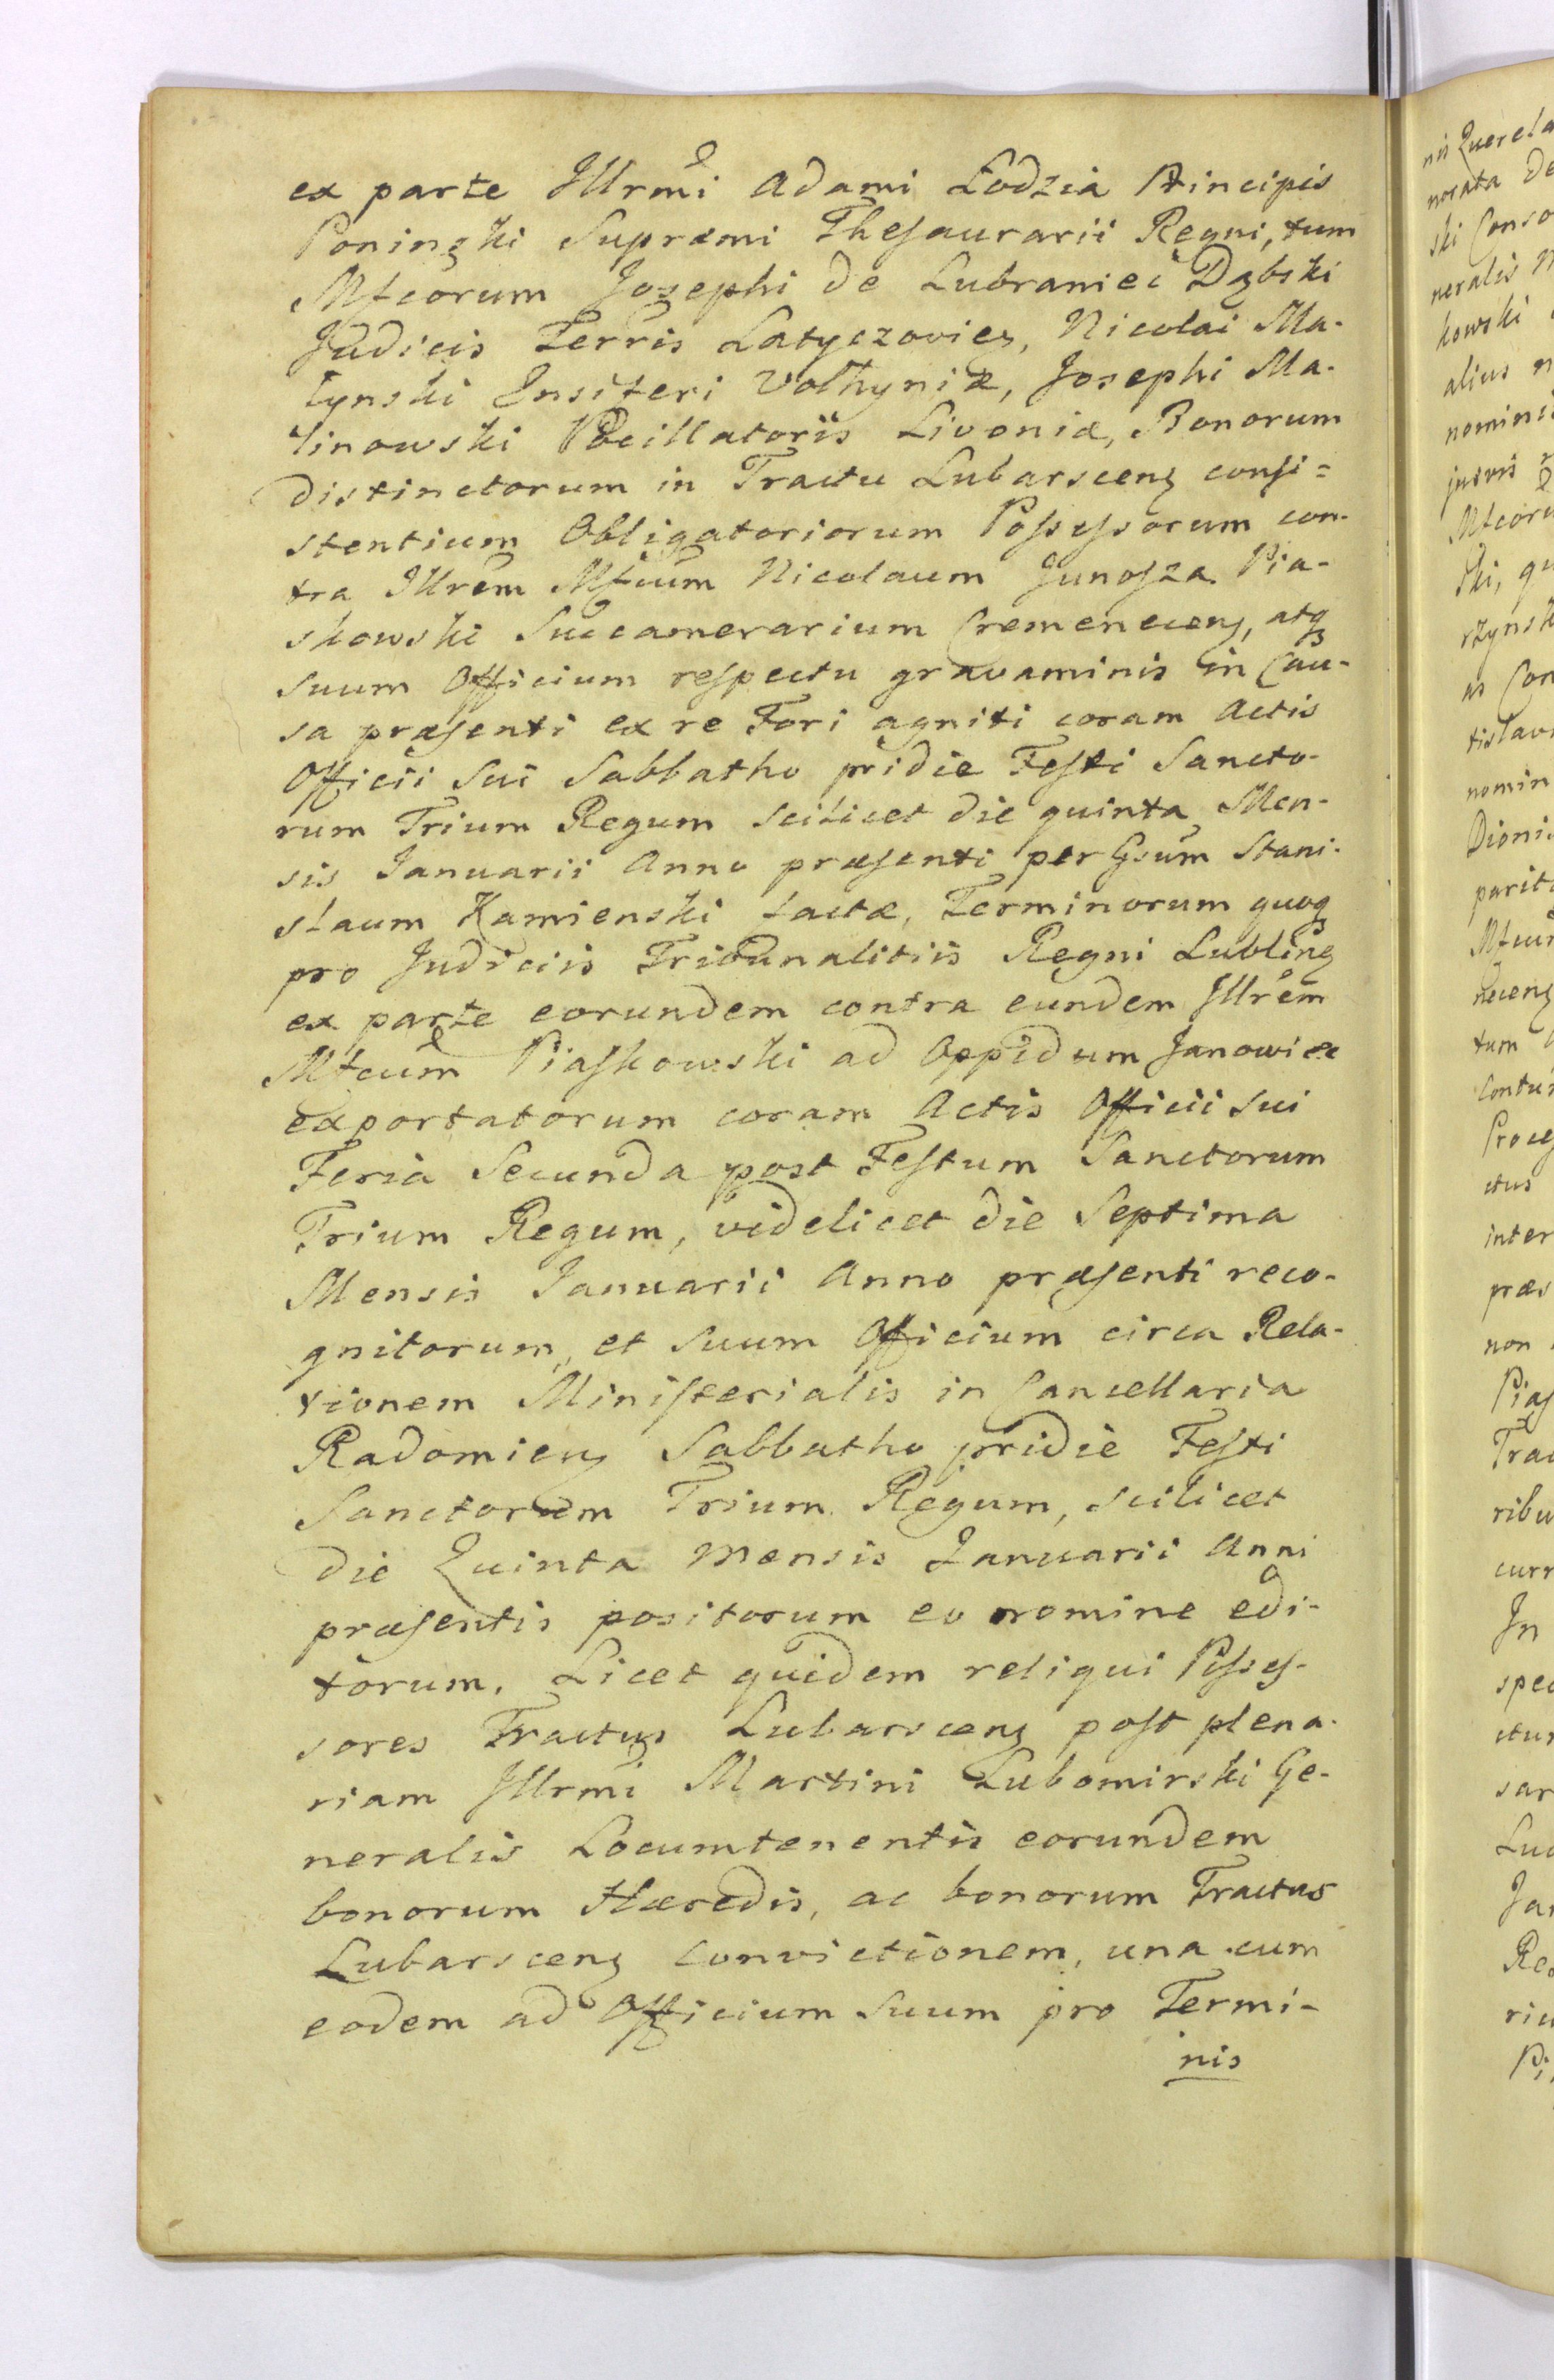 ex parte Jllrmi Adami Łodzia Principis
Poninski Supræmi Thesaurarii Regni, tum
Mfcorum Josephi de Lubraniec Dąbski
Judicis Terris Latyczovies, Nicolai Ma-
łynski Ensiferi Volhyniæ, Josephi Ma-
linowski Pocillatoris Livoniæ, Bonorum
distinctorum in Tractu Lubarscens consi=
stentium Obligatoriorum Possessorum con-
tra Jllrem Mfcum Nicolaum Junosza Pia-
skowski Succamerarium Cremenecens, atq
suum Officium respectu gravaminis in Cau-
sa præsenti ex re Fori agniti coram Actis
Officii sui Sabbatho pridie Festi Sancto-
rum Trium Regum scilicet die quinta Men-
sis Januarii Anno præsenti per Gsum Stani-
slaum Kamienski factæ, Terminorum quoq
pro Judiciis Tribunalitiis Regni Lublins
ex parte eorundem contra eundem Jllrem
Mfcum Piaskowski ad Oppidum Janowiec
exportatorum coram Actis Officii sui
Feria Secunda post Festum Sanctorum
Trium Regum, videlicet die Septima
Mensis Januarii Anno præsenti reco-
gnitorum, et suum Officium circa Rela-
tionem Ministerialis in Cancellaria
Radomiens Sabbatho pridie Festi
Sanctorum Trium Regum, scilicet
die Quinta Mensis Januarii Anni
præsentis positorum eo nomine edi-
torum. Licet quidem reliqui Posses-
sores Tractus Lubarscens post plena-
riam Jllrmi Martini Lubomirski Ge-
neralis Locumtenentis eorundem
bonorum Hæredis, ac bonorum Tractus
Lubarscens convictionem, una cum
eodem ad Officium suum pro Termi-
nis